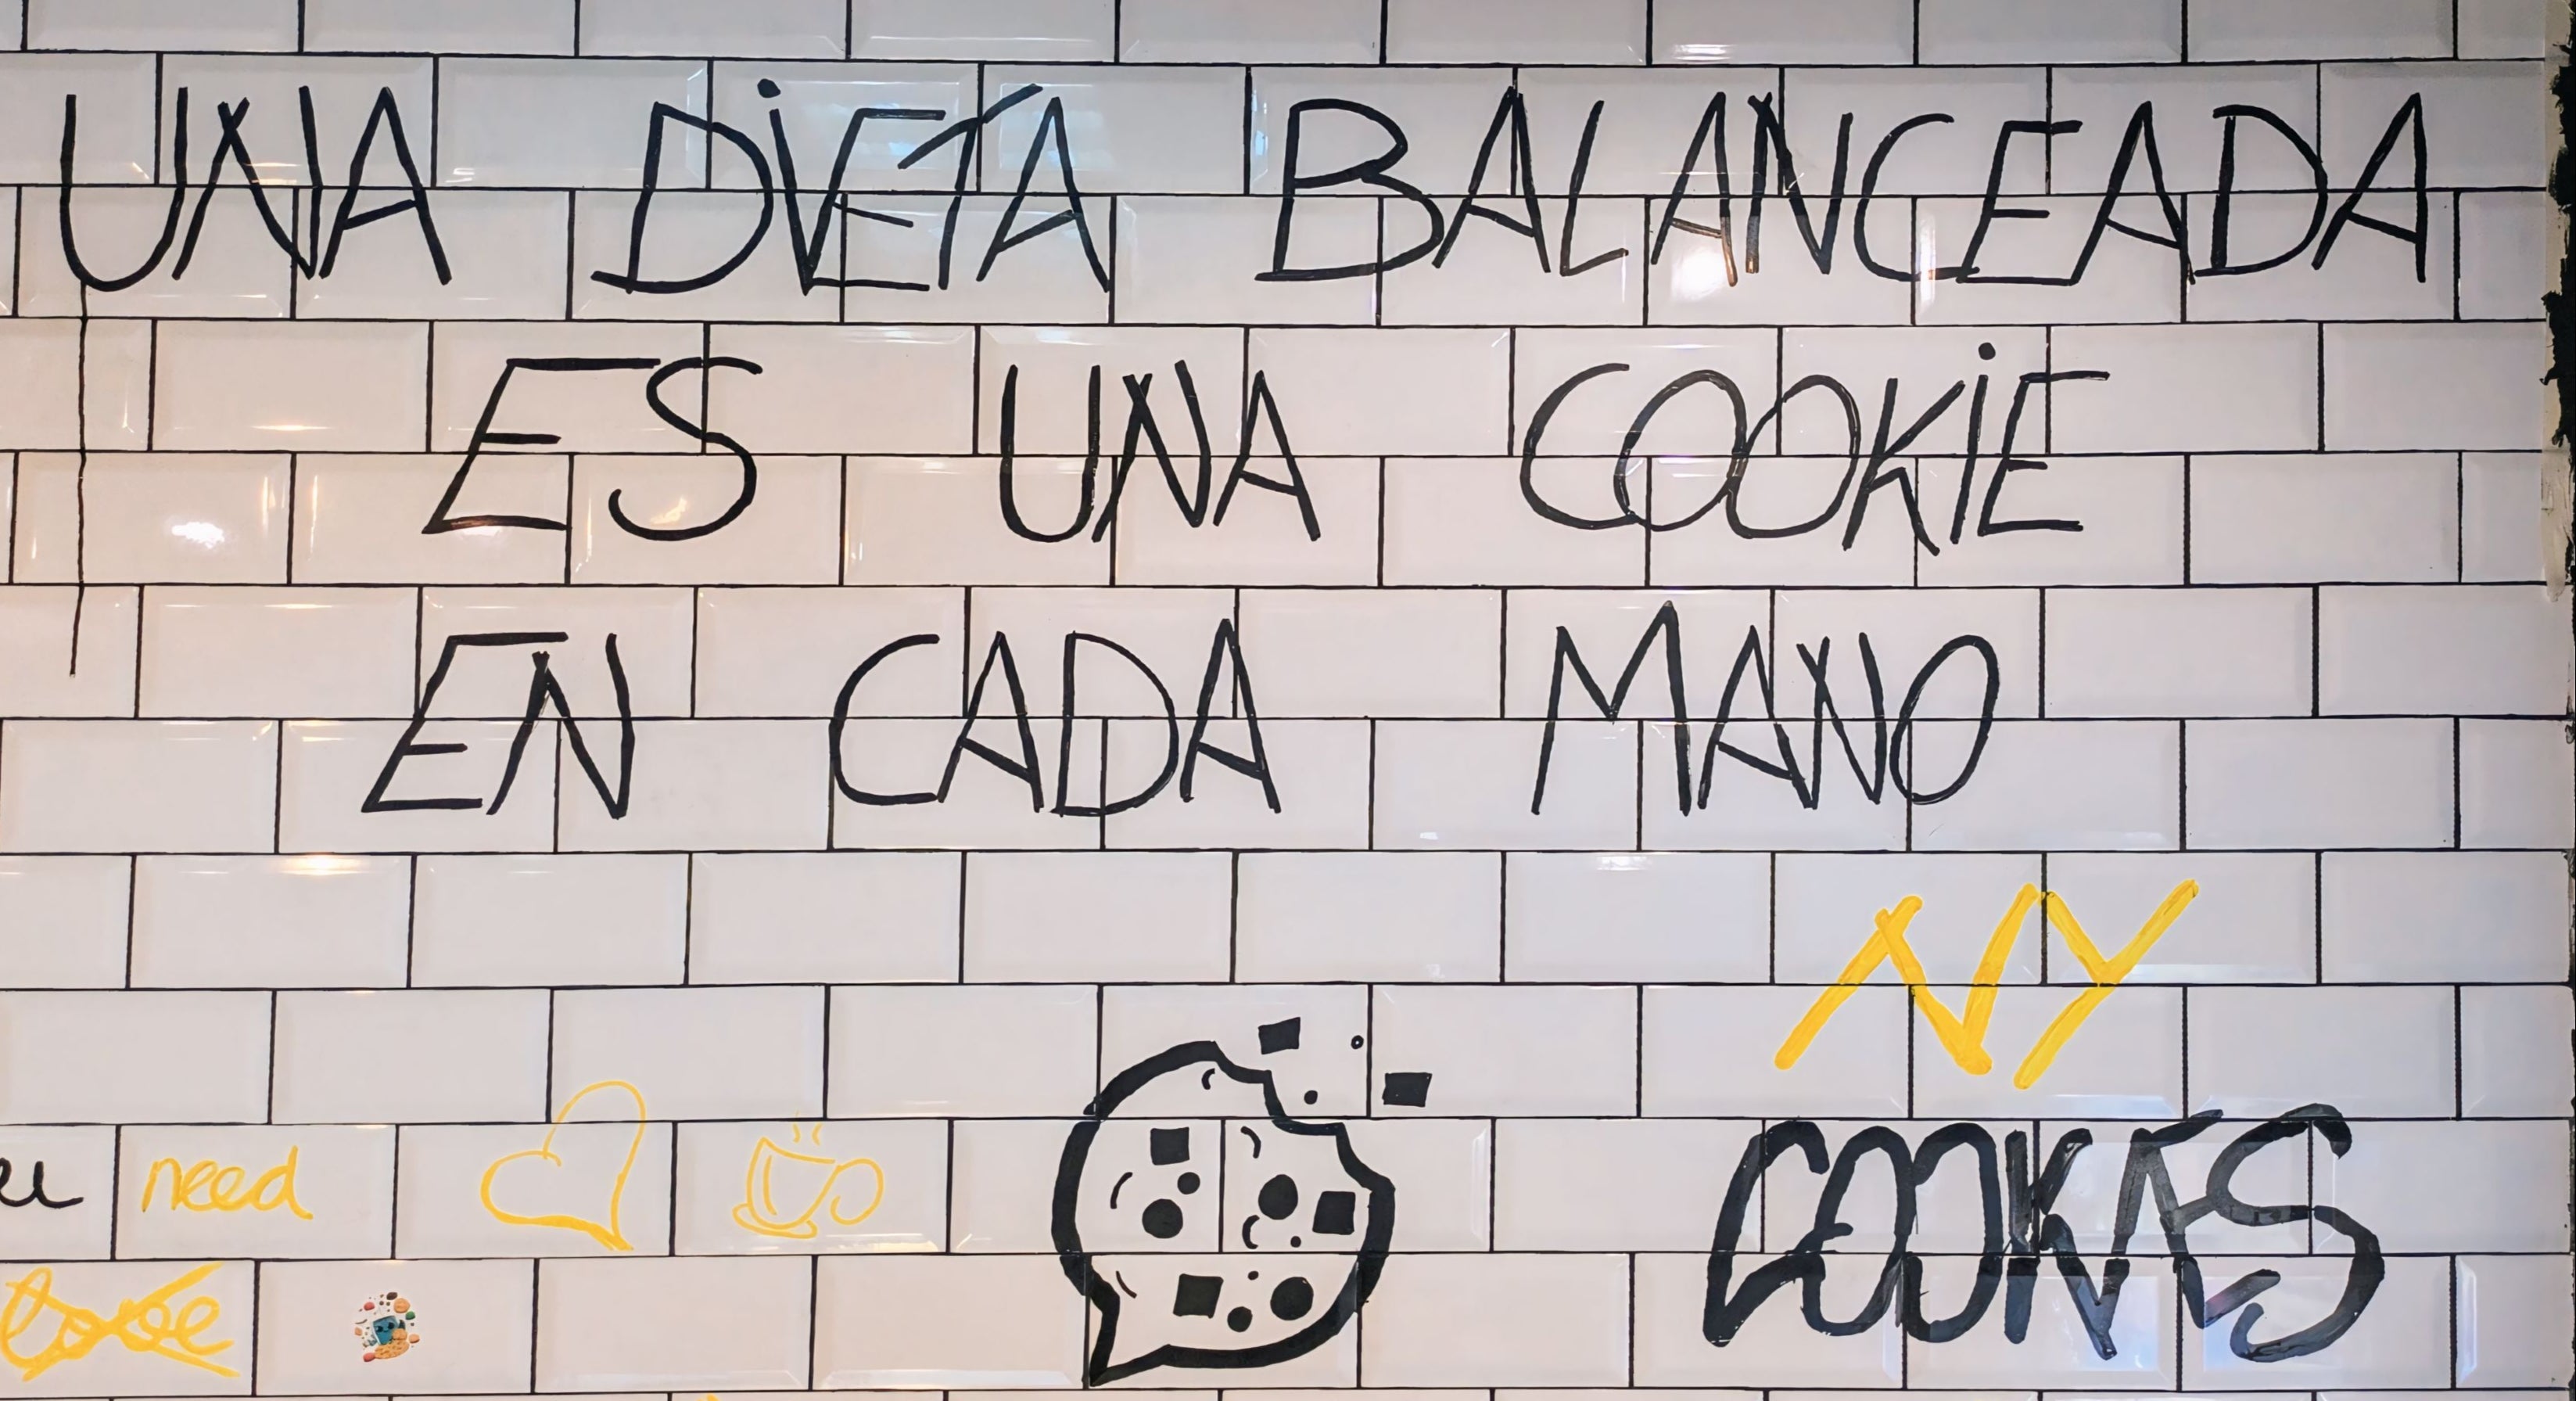 UNA DiETA BALANCEADA
ES UNA COOKiE
EN CADA MANO
NY
COOKIES
need
love